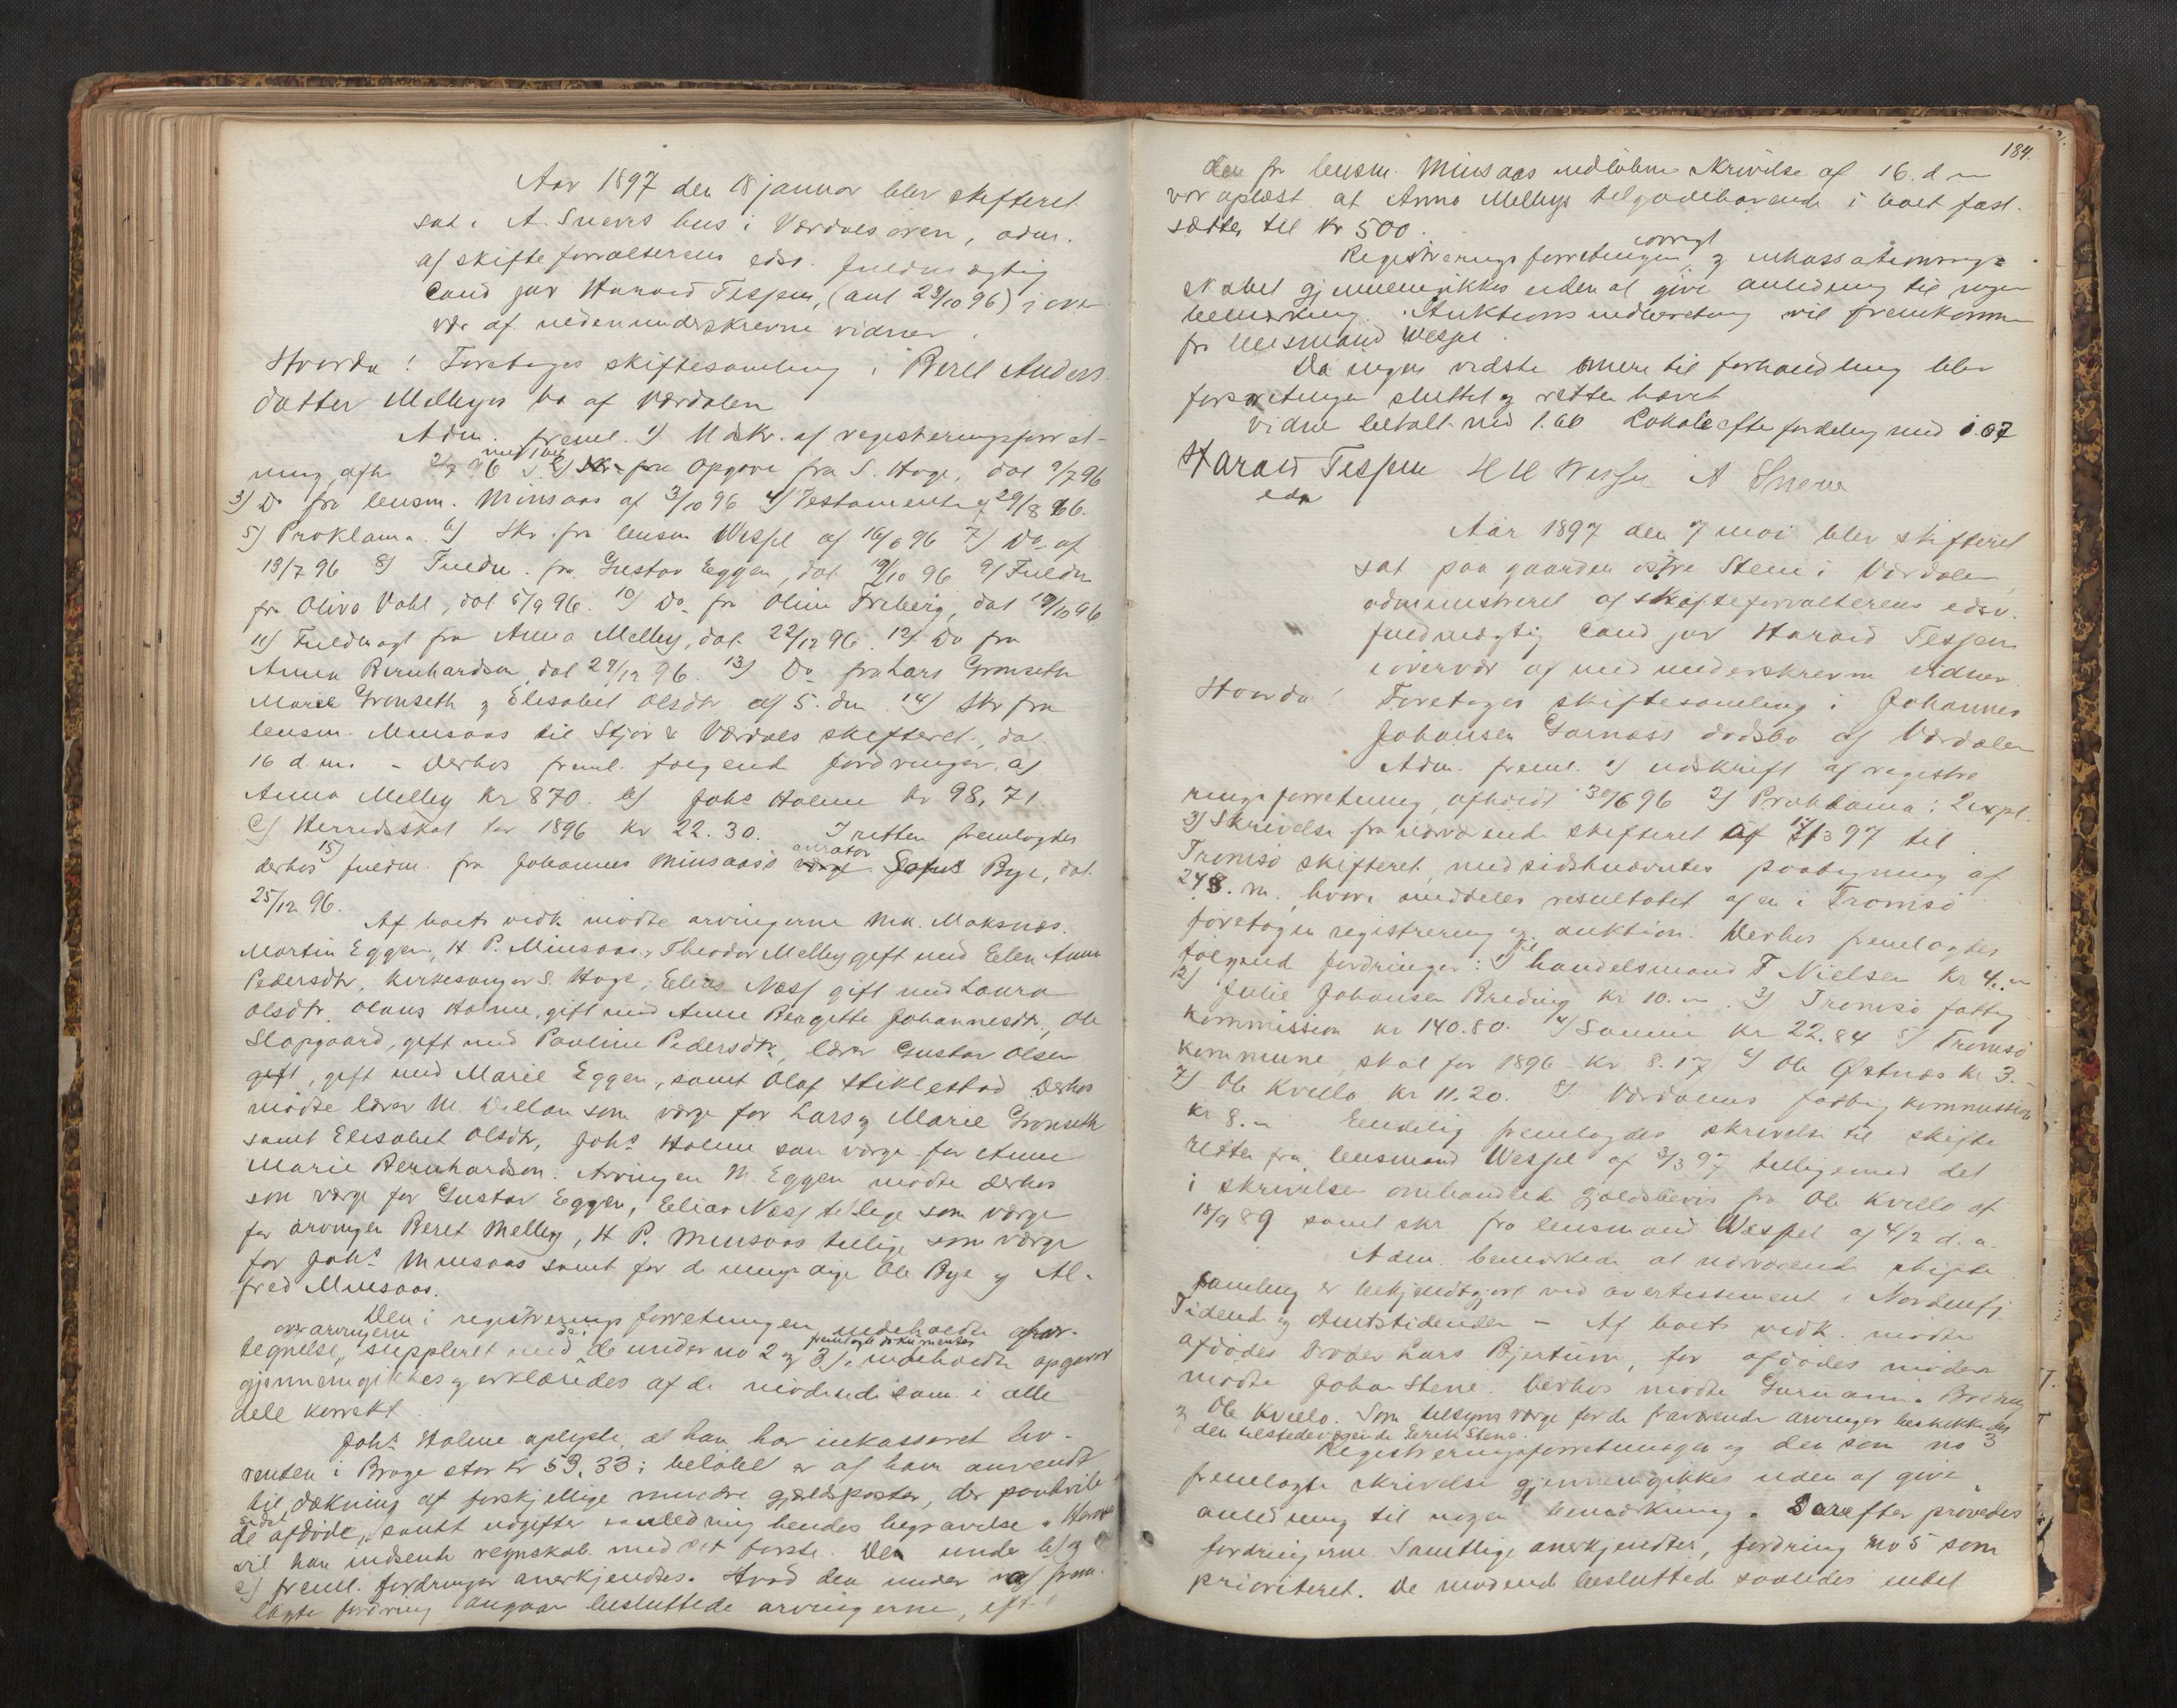 Aar 1897 den 18 januar blev skifteret
sat i A. Sneves hus i Værdalsøren, adm.
af skifteforvalterens edsv. fuldmægtig
Cand jur Harald Tesjem, (ant 23/10 96) i over
vær af nedenunderskrevne vidner.
Hvorda! Foretoges skiftesamling i Beret Anders
datter Melbyes bo af Værdalen
Adm. freml. 1) Udskr. af registreringsforret-
ning, afh. 2/7 96 2) Opgave fra S. Hage, dat 9/7 96
3) Do fra lensm. Minsaas af 3/10 96 4) Testamente af 29/8 66.
5) Proklama. 6) Skr. fra lensm Wessel af 16/6 96 7) Do af
13/7 96 8) Fuldm. fra Gustav Eggen, dat. 19/10 96 9) Fuldm
fra Oliva Dahl, dat 5/9 96. 10) Do fra Oline Friberg, dat 19/10 96
11) Fuldmagt fra Anna Melby, dat. 22/12 96. 12) Do fra
Anna Bernhardsen dat 29/12 96. 13) Do fra Lars Grønseth
Marie Grønseth & Elisabet Olsdtr af 5. dm. 14) Skr fra
lensm. Minsaas til Stjør & Værdals skifteret, dat.
16 d. m. - Derhos freml. følgende fordringer. a)
Anna Melby kr 870. b) Johs Holme kr 98,71
c) Herredsskat for 1896 kr 22.30. I retten fremlagdes
derhos 15) fuldm. fra Johannes Minsaas's curator Bye, dat.
25/12 96.
Af boets vedk. mødte arvingerne Mk. Maksnæs.
Martin Eggen, H. P. Minsaas, Theodor Melby gift med Elen Anna
Pedersdtr, kirkesanger S. Hage, Elias Næss gift med Laura
Olsdtr. Olaus Holme, gift med Anne Bergitte Johannesdtr, Ole
Slapgaard, gift med Pauline Pedersdtr, lærer Gustav Olsen
gift, gift med Marie Eggen, samt Olaf Stiklestad. Derhos
mødte lærer M. som værge for Lars & Marie Grønseth
samt Elisabet Olsdtr, Johs Holme som værge for Anne
Marie Bernhardsen. Arvingen M. Eggen mødte derhos
som værge for Gustav Eggen, Elias Næss tillige som værge
for arvingen Beret Melby, H. P. Minsaas tillige som værge
for Johs Minsaas samt for de umyndige Ole Bye & Al-
fred Minsaas.
Den i registreringsforretningen indeholdte for-
tegnelse over arvingerne, suppleret med de i de under no 2 & 3 fremlagte dokumenter indeholdte opgaver
gjennemgikkes & erklæredes af de mødende som i alle
dele korrekt.
Johs Holme oplyste, at han har inkasseret liv-
renten i Brage stor kr 53,33; beløbet er af han anvendt
til dækning af forskjellige mindre gjældsposter, der paahvile
de afdøde, samt udgifter i anledning hendes begravelse.
vil han indsende regnskab med det første. Den under b) og
c) freml. fordringer anerkjendtes. Hvad den under a) frem
lagte fordring angaar besluttede arvingerne, eft
184.
den fra lensm. Minsaas indløbne skrivelse af 16. d m
var oplæst at Anna Melbys tilgodehavende i boet fast-
sættes til kr 500.
Registreringsforretningen
skabet gjennemgikkes uden at give anledning til nogen
bemærkning. Auktionsindberetning vil fremkomme
fra lensmand Wessel.
Da ingen vidste mere til forhandling blev
forretningen sluttet & retten hævet
Vidne betalt med 1.60 Lokale efter fordeling med 1.07
Harald Tesjem H H Wessel A Sneve
edsv
Aar 1897 den 7 mai blev skifteret
sat paa gaarden østre Stene i Værdalen
administreret af skifteforvalterens edsv.
fuldmægtig Cand jur Harald Tesjem
i overvær af med underskrevne vidner.
Hvorda! Foretoges skiftesamling i Johannes
Johansen Garnæss dødsbo af Værdalen
Adm. freml. 1) udskrift af registre
ringsforretning, afholdt 30/6 96 2) Proklama i 2 expl.
3) Skrivelse fra nærværende skifteret af 17/3 97 til
Tromsø skifteret, med sidstnævntes paategning af
24 s. m., hvori meddeles resultatet af en i Tromsø
foretagen registrering og auktion. Derhos fremlagdes
følgende fordringer: 1) Fra handelsmand F Nielsen kr 4.
2) Julie Johansen Breding kr 10. 3) Tromsø fattig
kommission kr 140.80. 4) Samme kr 22.84 5) Tromsø
kommune, skat for 1896 kr. 8.17 6) Ole Østnæs kr 3.
7) Ole Kvello kr 11.20. 8) Værdalens fattigkommission
kr 8. Endelig fremlagdes skrivelse til skifte
retten fra lensmand Wessel af 3/3 97 tilligemed det
i skrivelsen omhandlede gjældsbevis fra Ole Kvello af
18/9 89 samt skr fra lensmand Wessel af 4/2 d. a.
Adm. bemærkede at nærværende skifte
samling er bekjendtgjort ved avertissement i Nordenfj
Tidende og Amtstidenden - Af boets vedk. mødte
afdødes broder Lars Bjertum, for afdødes moder
mødte Johan Stene. Derhos mødte Breding
& Ole Kvello. Som tilsynsværge for de fraværende arvinger beskikkedes
den tilstedeværende Erik Stene.
Registreringsforretningen og den som no 3
fremlagte skrivelse gjennemgikkes uden at give
anledning til nogen bemærkning. Derefter prøvedes
fordringerne. Samtlige anerkjendtes, fordring no 5 som
prioriteret. De mødende besluttede saaledes intet